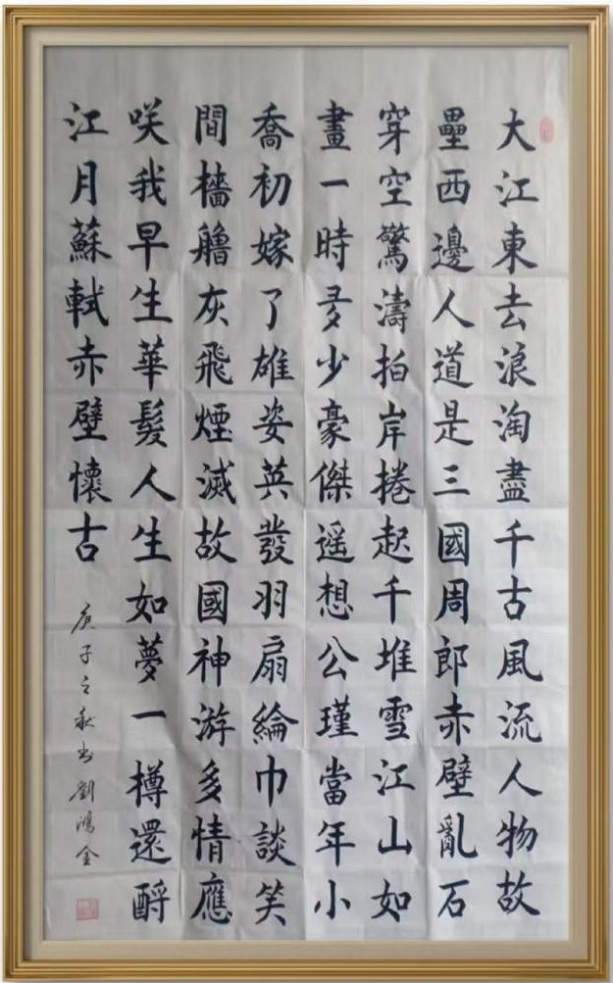 大江東去浪淘盡千古風流人物故
壘西邊人道是三國周郎赤壁亂石
穿空驚濤拍岸捲起千堆雪江山如
畫一時多少豪傑遥想公瑾當年小
喬初嫁了雄姿英發羽扇綸巾談笑
間檣艣灰飛煙滅故國神游多情應
咲我早生華髮人生如夢一樽還酹
江月蘇軾赤壁懷古
庚子之秋書劉鴻金